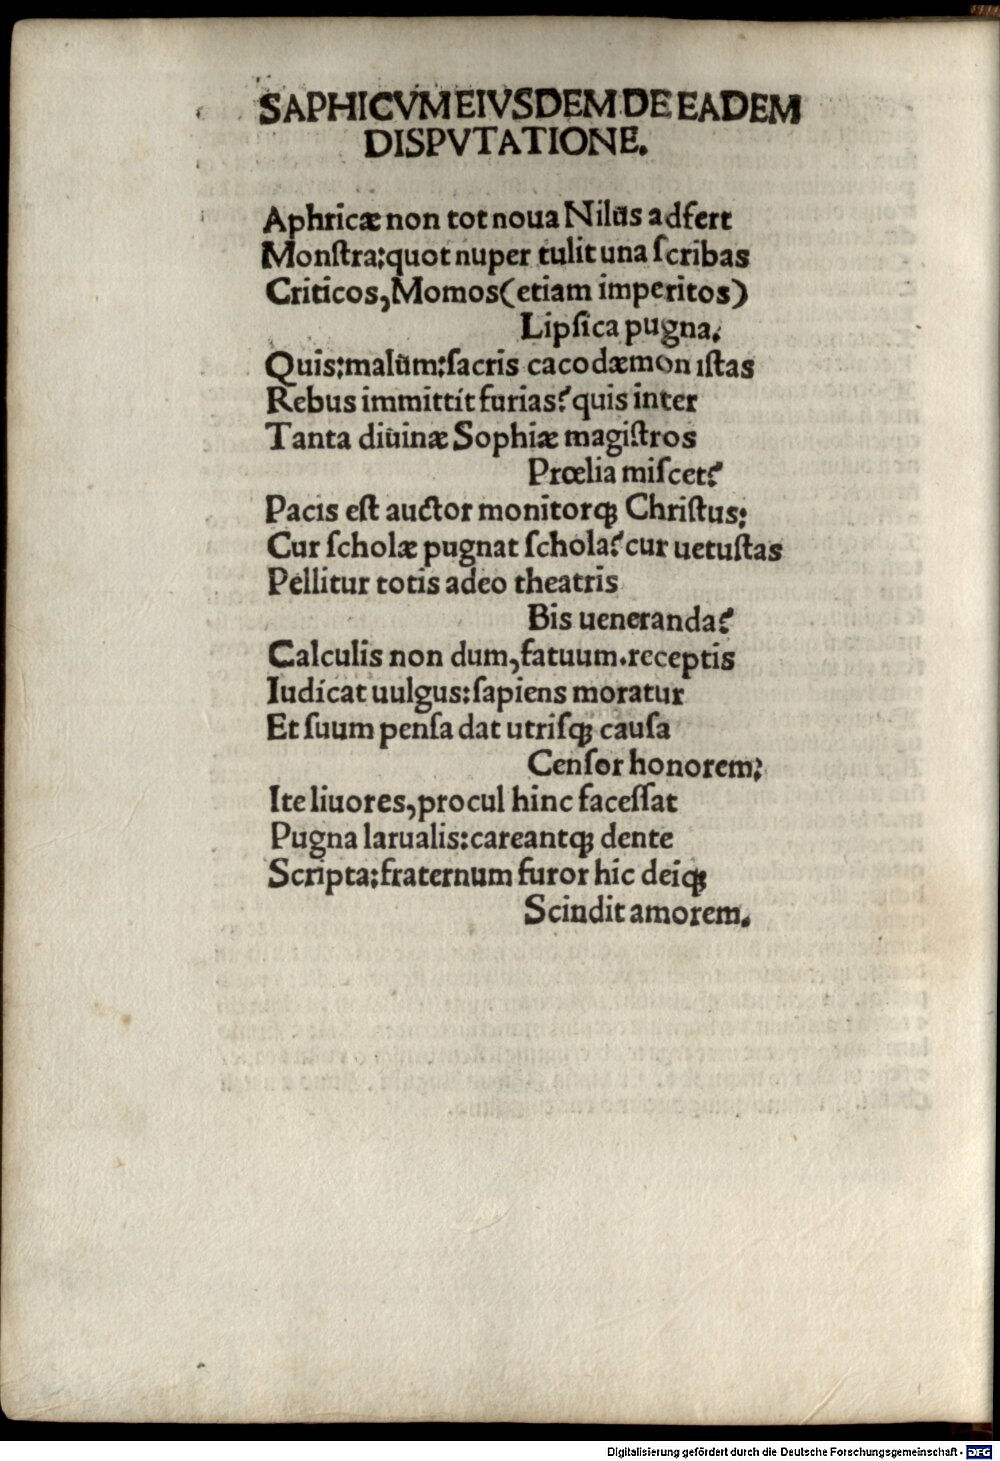 SAPHICVM EIVSDEM DE EADEM
DISPVTATIONE.
Aphricæ non tot noua Nilus adfert
Monſtra:quot nuper tulit una ſcribas
Criticos,Momos(etiam imperitos)
Lipſica pugna.
Quis:malum:ſacris cacodæmon iſtas
Rebus immittit furias?quis inter
Tanta diuinæ Sophiæ magiſtros
Prœlia miſcet?
Pacis eſt auctor monitorꝗ Chriſtus:
Cur ſcholæ pugnat ſchola?cur uetuſtas
Pellitur totis adeo theatris
Bis ueneranda?
Calculis non dum,fatuum.receptis
Iudicat uulgus:ſapiens moratur
Et ſuum penſa dat utriſꝗ cauſa
Cenſor honorem:
Ite liuores,procul hinc faceſſat
Pugna larualis:careantꝗ dente
Scripta:fraternum furor hic deiꝗ
Scindit amorem.
Digitalisierung gefördert durch die Deutsche Forschungsgemeinschaft - DFG